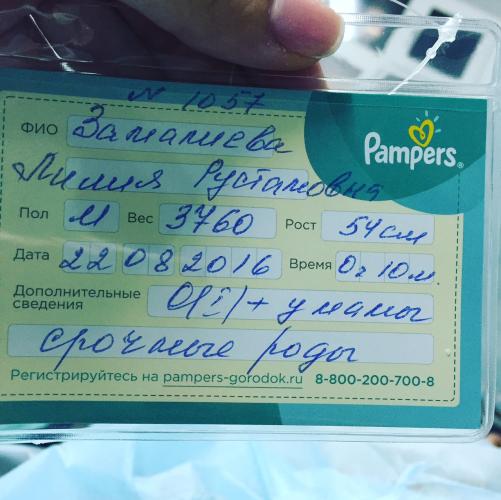 N 1057
ФИО Замалиева
Pampers®
Лилия Рустамовна
Пол М Вес 3760 Рост 54см
Дата 22 08 2016 Время 0ч 10м.
Дополнительные сведения O(I)+ у мамы
срочные роды
Регистрируйтесь на pampers-gorodok.ru 8-800-200-700-8